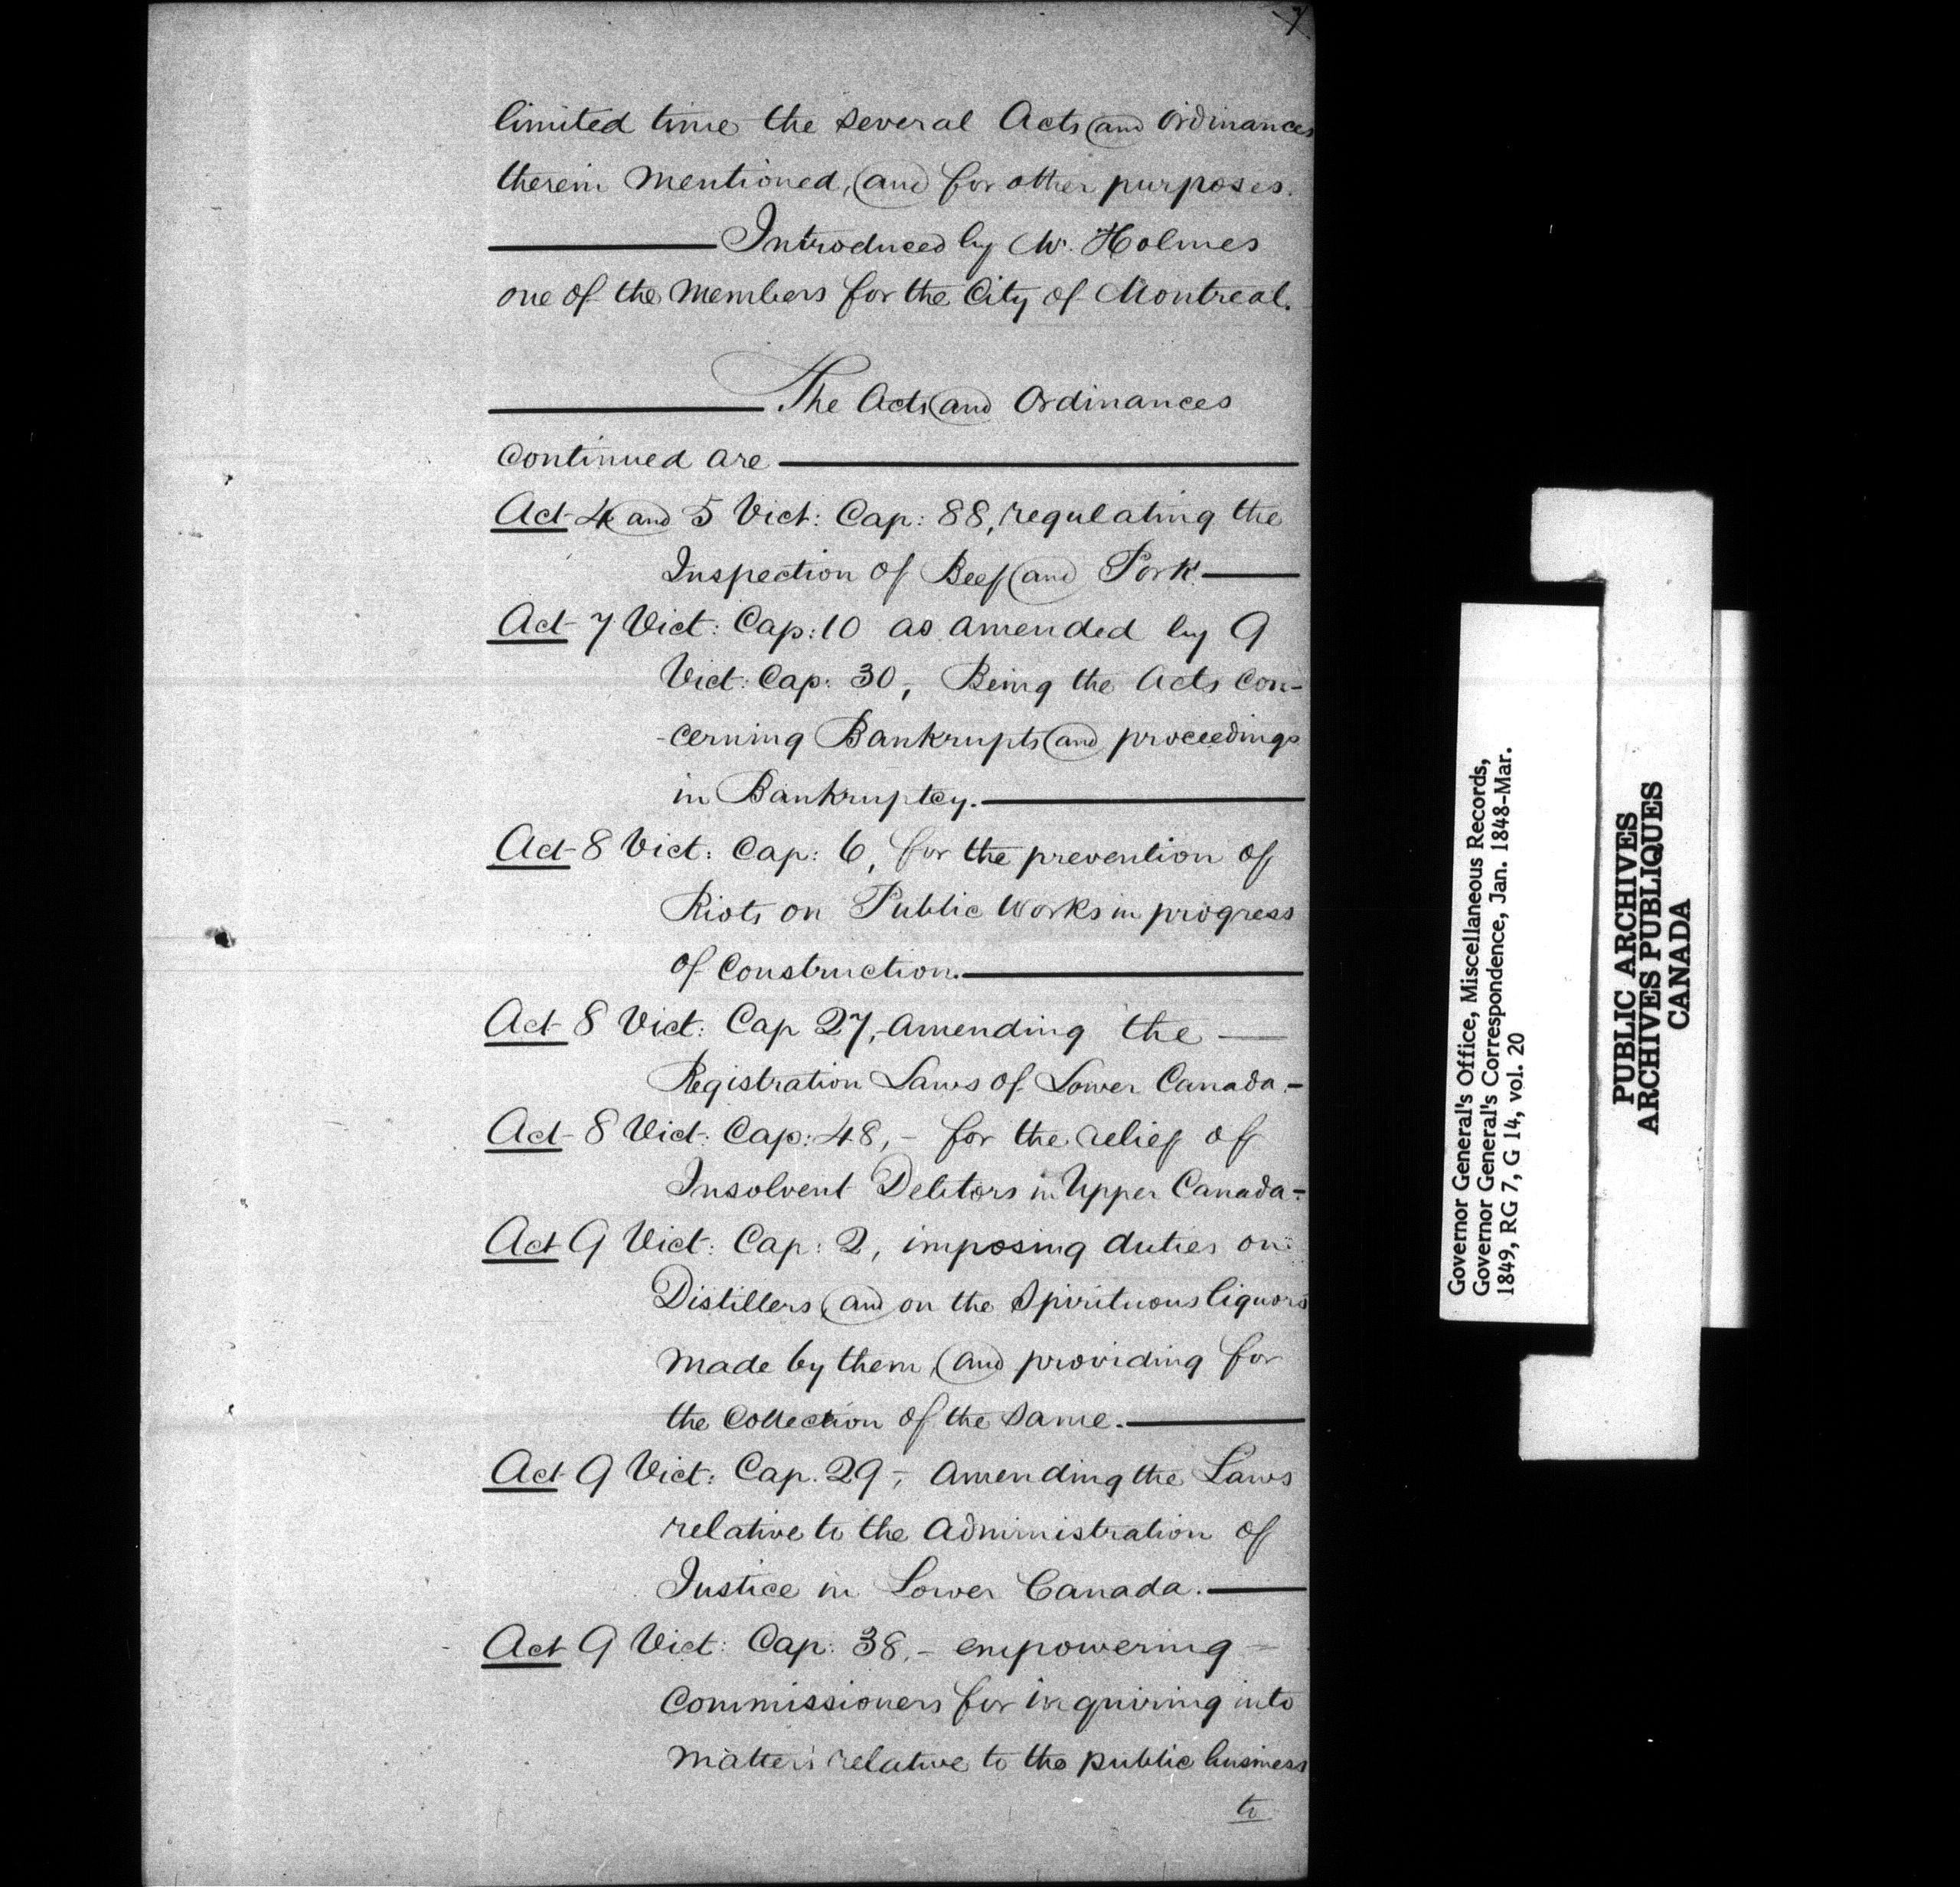 7
limited time the several Acts and Ordinances
therein mentioned, and for other purposes.
Introduced by Mr. Holmes
one of the Members for the City of Montreal.
The Acts and Ordinances
continued are
Act 4 and 5 Vict: Cap: 88, regulating the
Inspection of Beef and Pork.
Act 7 Vict: Cap: 10 as amended by 9
Vict: Cap: 30, Being the Acts con-
-cerning Bankrupts and proceedings
in Bankruptcy.
Act 8 Vict: Cap: 6, for the prevention of
Riots on Public Works in progress
of Construction.
Act 8 Vict: Cap 27, amending the
Registration Laws of Lower Canada.
Act 8 Vict: Cap: 48, - for the relief of
Insolvent Debtors in Upper Canada.
Act 9 Vict: Cap: 2, imposing duties on
Distillers, and on the Spirituous liquors
made by them, and providing for
the Collection of the same.
Act 9 Vict: Cap. 29, - amending the Laws
relative to the administration of
Justice in Lower Canada.
Act 9 Vict: Cap: 38, - empowering
Commissioners for inquiring into
matters relative to the public business
to
Governor General's Office, Miscellaneous Records,
Governor General's Correspondence, Jan. 1848-Mar.
1849, RG 7, G 14, vol. 20
PUBLIC ARCHIVES
ARCHIVES PUBLIQUES
CANADA